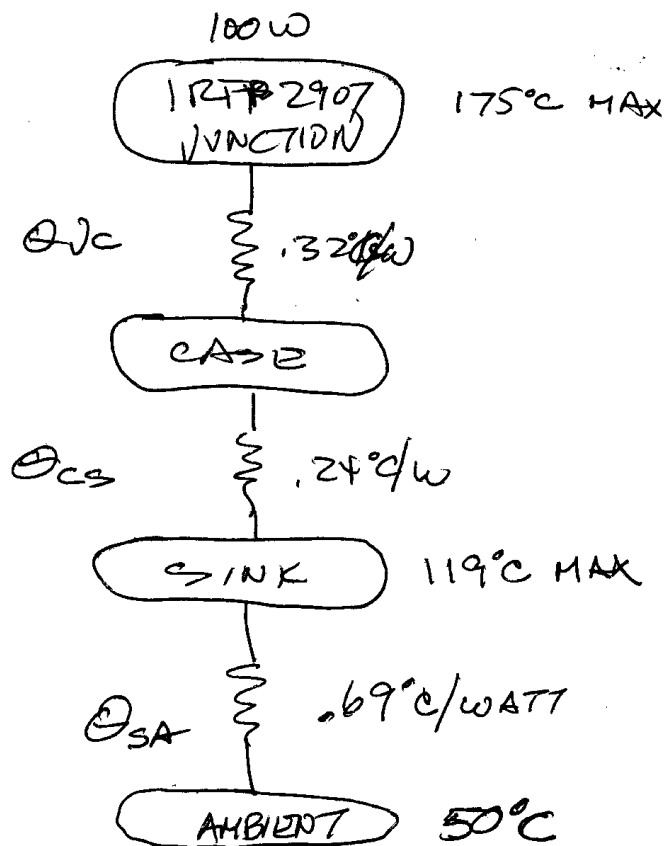 100W
IRFP2907 175°C MAX
JUNCTION
θJC .32°C/W
CASE
θCS .24°C/W
SINK 119°C MAX
θSA .69°C/WATT
AMBIENT 50°C